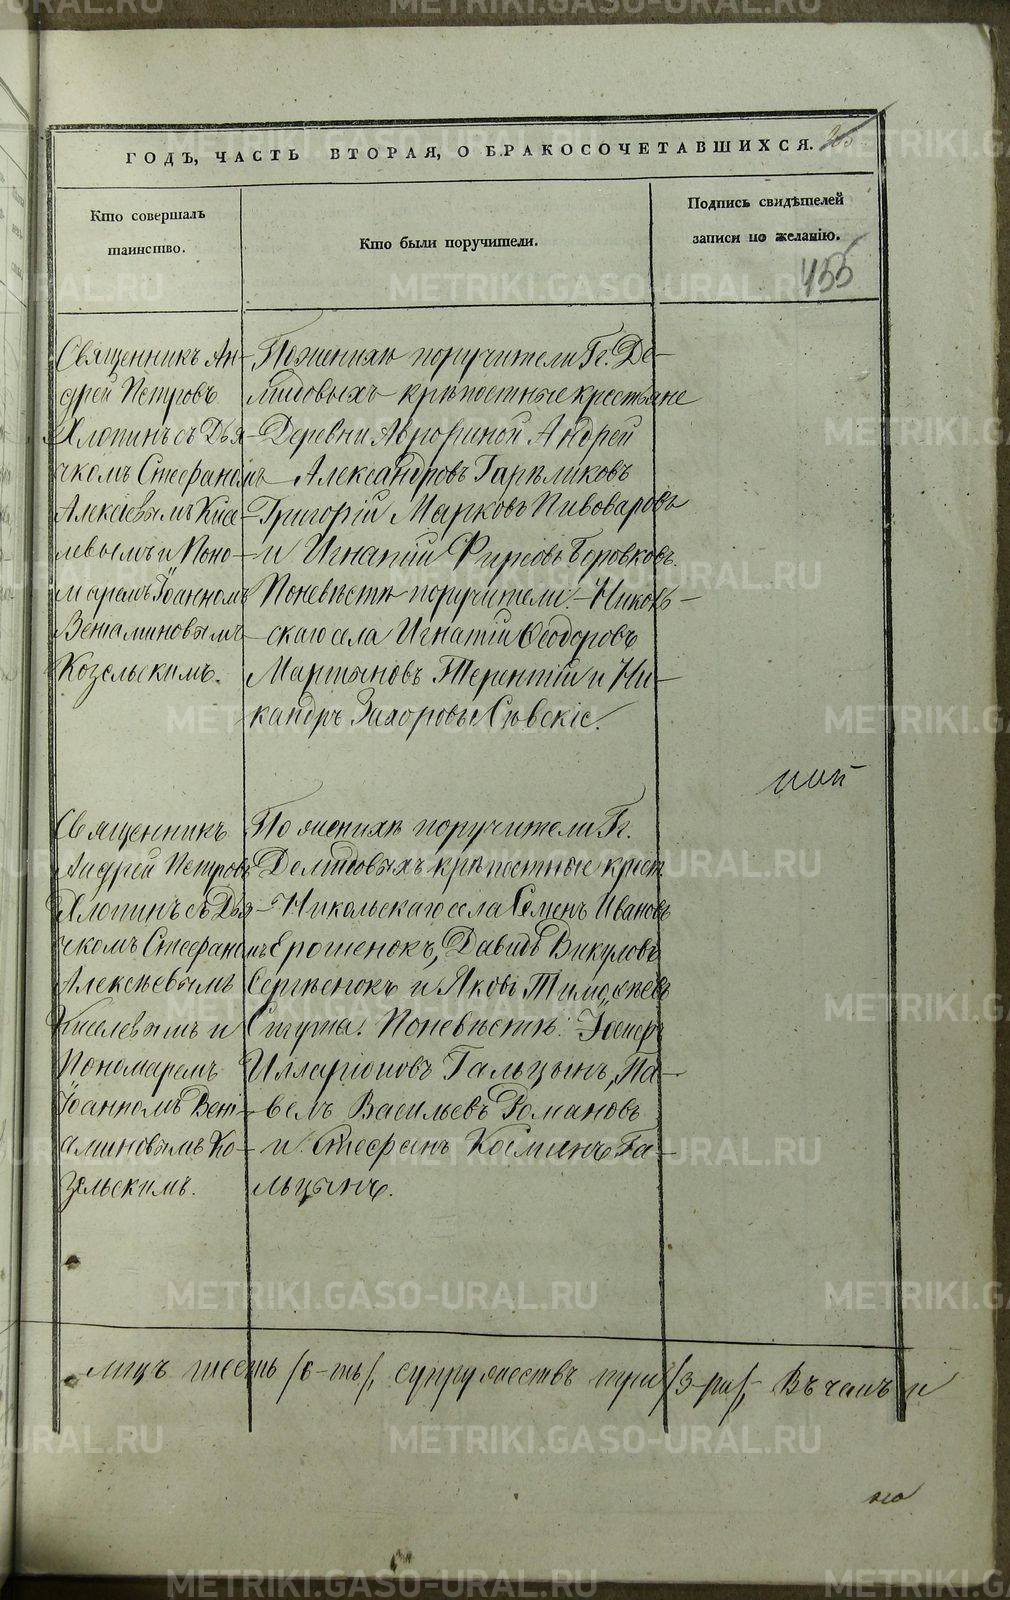 ГОДЪ, ЧАСТЬ ВТОРАЯ, О БРАКОСОЧЕТАВШИХСЯ.
Кто совершалъ
таинство.
Кто были поручители.
Подпись свидѣтелей
записи по желанію.
455
Священникъ Ан-
дрей Петровъ
Хлопинъ съ Дья-
чкомъ Стефаномъ
Алексѣевымъ Кисе-
левымъ и Поно-
маремъ Іоанномъ
Веніаминовымъ
Козельскимъ.
По женихѣ поручители Гг. Де-
мидовыхъ крѣпостные крестьяне
Деревни
Андрей
Александровъ Гарѣликовъ
Григорій Марковъ Пивоваровъ
и Игнатій Фирсовъ Боровковъ.
По невѣстѣ поручители: Николь-
скаго села Игнатій Ѳеодоровъ
Мартыновъ Терентій и Ни-
кандръ Захоровы Сѣвскіе.
Священникъ
Андрей Петровъ
Хлопинъ съ Дья-
чкомъ Стефаномъ
Алексѣевымъ
Киселевымъ и
Пономаремъ
Іоанномъ Вені-
аминовымъ Ко-
зельскимъ.
По женихѣ поручители Гг.
Демидовыхъ крѣпостные крест
Никольскаго села Семенъ Ивановъ
Ерошенокъ, Давидъ Викуловъ
Сергѣенокъ и Яковъ Тимоѳеевъ
По невѣстѣ:
Илларіоновъ Гальцынъ, Па-
велъ Васильевъ Романовъ
и Стефанъ Косминъ Га-
льцынъ.
лицъ шесть /6-ть/, супружествъ три /3-ри/, Въ чемъ и
METRIKI.GASO-URAL.RU